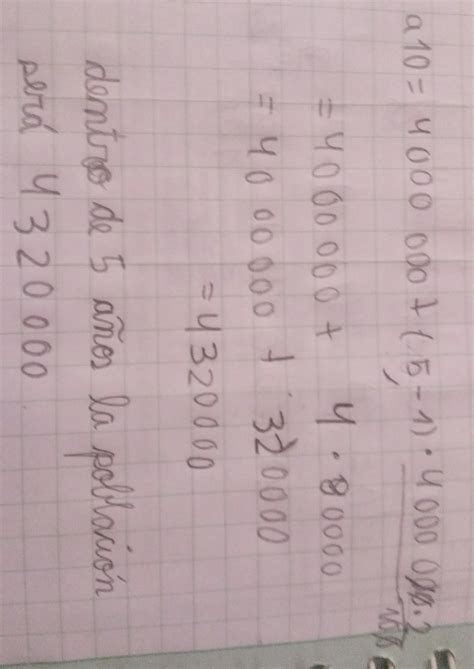 a10 = 4000 000 + (5 - 1) • 4000 000 • 2 / 100
= 4000000 + 4 • 80000
= 4000000 + 320000
= 4320000
dentro de 5 años la población
será 4320000